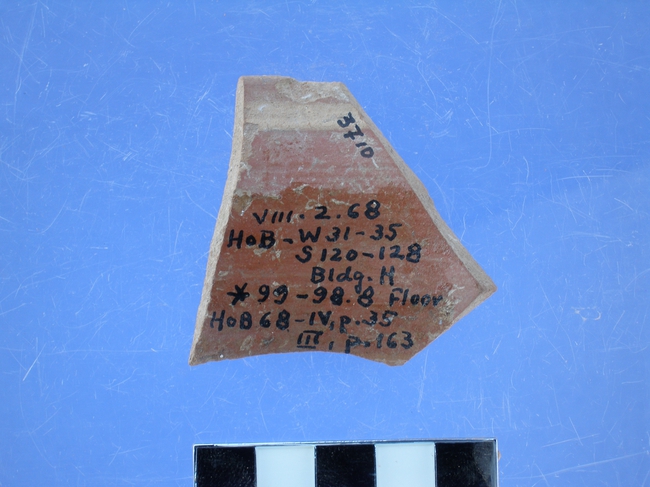 3710
VIII.2.68
HoB-W31-35
S120-128
Bldg. H
*99-98.8 Floor
HoB68-IV, p.35
III, p.163